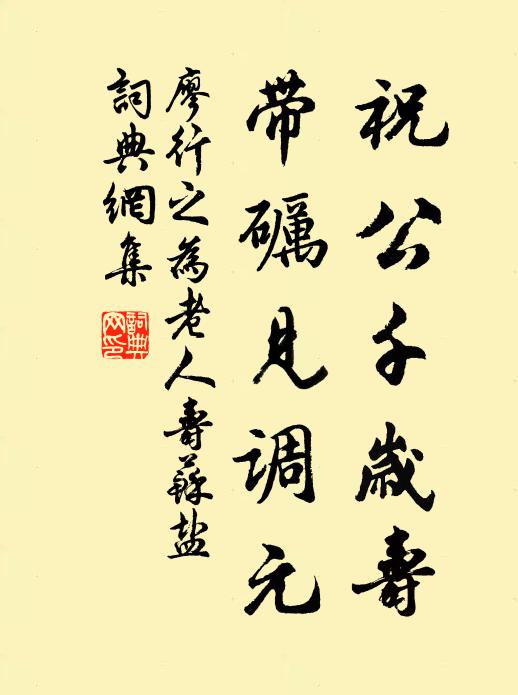 祝公千歲壽
带礪見调元
廖行之為老人壽蘇盐
詞典網集
詞典网印